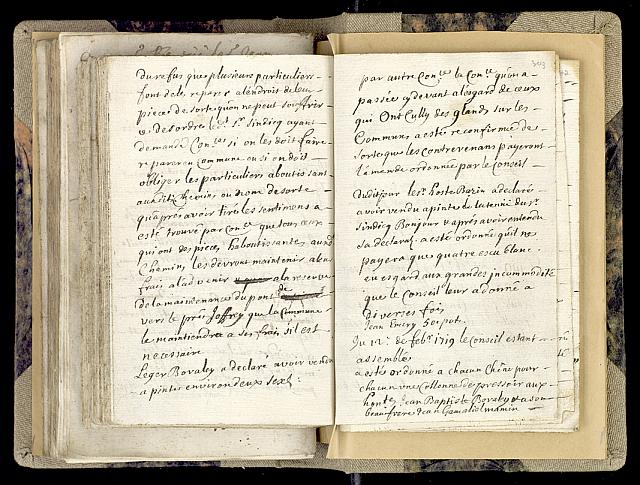 du refus que plusieurs particuliers
font de le reparer a l'endroit de leur
piece de sorte qu'on ne peut souffrir
ce desordre led.t S.r Sindicq ayant
demandé Con.ce si on les doit faire
reparer en Commune ou si on doit
obliger les particuliers aboutissant
auxdits Chemins ou non de sorte
qu'après avoir tiré les sentimens a
esté trouvé par Con.ce que tous ceux
qui ont des pieces s'aboutissantes auxd.
Chemins les devront maintenir a leu
frais a l'advenir a la reserve
de la maintenance du pont de
vers le pré Joffrey que la Commune
le maintiendra a ses frais s'il est
necessaire
Leger Bovaley a declaré avoir vendu
a pintes environ deux sex.
343
par autre Con.ce la Con.ce qu'on a
passée cy devant a l'esgard de ceux
qui Ont Cully des glands sur les
Communs a esté reconfirmée de
sorte que les contrevenans payeront
l'amende ordonnée par le Conseil
Dudit jour le S.r hoste Bazin a declaré
avoir vendu a pinte du S.r
Sindicq Bonjour apres avoir entendu
sa declarat. a esté ordonné qu'il ne
payera que quatre escu blanc
eu esgard aux grandes incommodité
que le Conseil leur a donné a
diverses fois
Jean Emery
Du 12.e de feb.r 1719 le Conseil estant
assemblé
a esté ordonné a chacun Chêne pour
chacun une Collonne de pressoir aux
Jean Baptiste Bovaley et a son
beau frere Jean Gamaliel